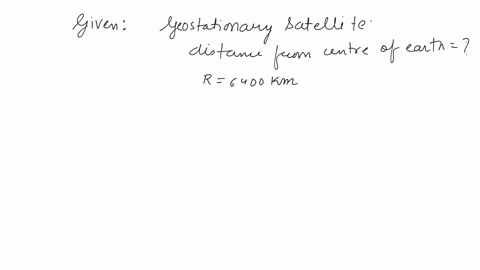 Given: Geostationary Satellite.
distance from centre of earth = ?
R = 6400 Km